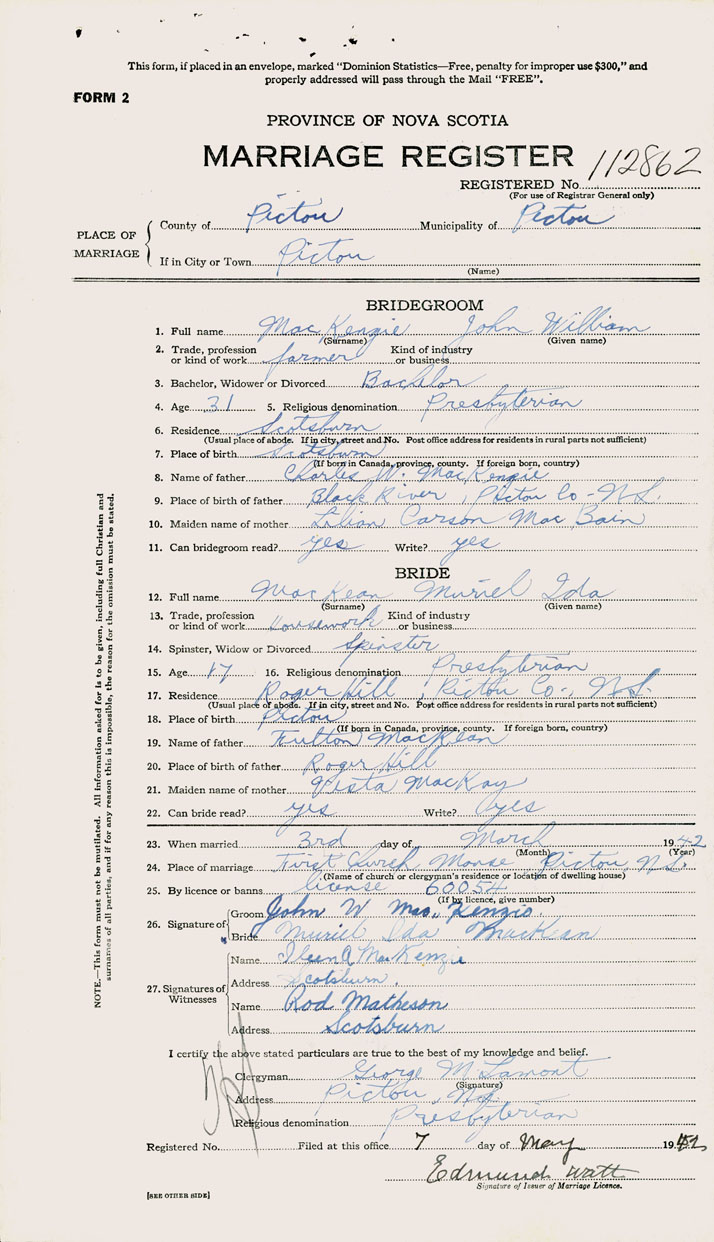 This form, if placed in an envelope, marked "Dominion Statistics—Free, penalty for improper use $300," and
properly addressed will pass through the Mail "FREE".
FORM 2
PROVINCE OF NOVA SCOTIA
MARRIAGE REGISTER
REGISTERED No. 112862
(For use of Registrar General only)
PLACE OF MARRIAGE
County of Pictou Municipality of Pictou
If in City or Town Pictou
(Name)
BRIDEGROOM
1. Full name MacKenzie John William
(Surname) (Given name)
2. Trade, profession or kind of work farmer Kind of industry or business
3. Bachelor, Widower or Divorced Bachlor
4. Age 31 5. Religious denomination Presbyterian
6. Residence Scotsburn
(Usual place of abode. If in city, street and No. Post office address for residents in rural parts not sufficient)
7. Place of birth Scotsburn
(If born in Canada, province, county. If foreign born, country)
8. Name of father Charles W. MacKenzie
9. Place of birth of father Black River, Pictou Co-N.S.
10. Maiden name of mother Lilian Carson MacBain
11. Can bridegroom read? yes Write? yes
BRIDE
12. Full name MacKean Muriel Ida
(Surname) (Given name)
13. Trade, profession or kind of work Housework Kind of industry or business
14. Spinster, Widow or Divorced Spinster
15. Age 17 16. Religious denomination Presbyterian
17. Residence Roger Hill, Pictou Co-, N.S.
(Usual place of abode. If in city, street and No. Post office address for residents in rural parts not sufficient)
18. Place of birth Pictou
(If born in Canada, province, county. If foreign born, country)
19. Name of father Fulton MacKean
20. Place of birth of father Roger Hill
21. Maiden name of mother Vista MacKay
22. Can bride read? yes Write? yes
23. When married 3rd day of March 1942
(Month) (Year)
24. Place of marriage First Manse Pictou, N.S.
(Name of church or clergyman's residence or location of dwelling house)
25. By licence or banns license 60054
(If by licence, give number)
26. Signature of
Groom John W MacKenzie.
Bride Muriel Ida MacKean
27. Signatures of Witnesses
Name MacKenzie
Address Scotsburn.
Name Rod Matheson
Address Scotsburn
I certify the above stated particulars are true to the best of my knowledge and belief.
Clergyman George M Lamont
(Signature)
Address Pictou, N.S.
Religious denomination Presbyterian
Registered No. Filed at this office 7 day of May 1942
Edmund Watt
Signature of Issuer of Marriage Licence.
[SEE OTHER SIDE]
NOTE.—This form must not be mutilated. All information asked for is to be given, including full Christian and
surnames of all parties, and if for any reason this is impossible, the reason for the omission must be stated.